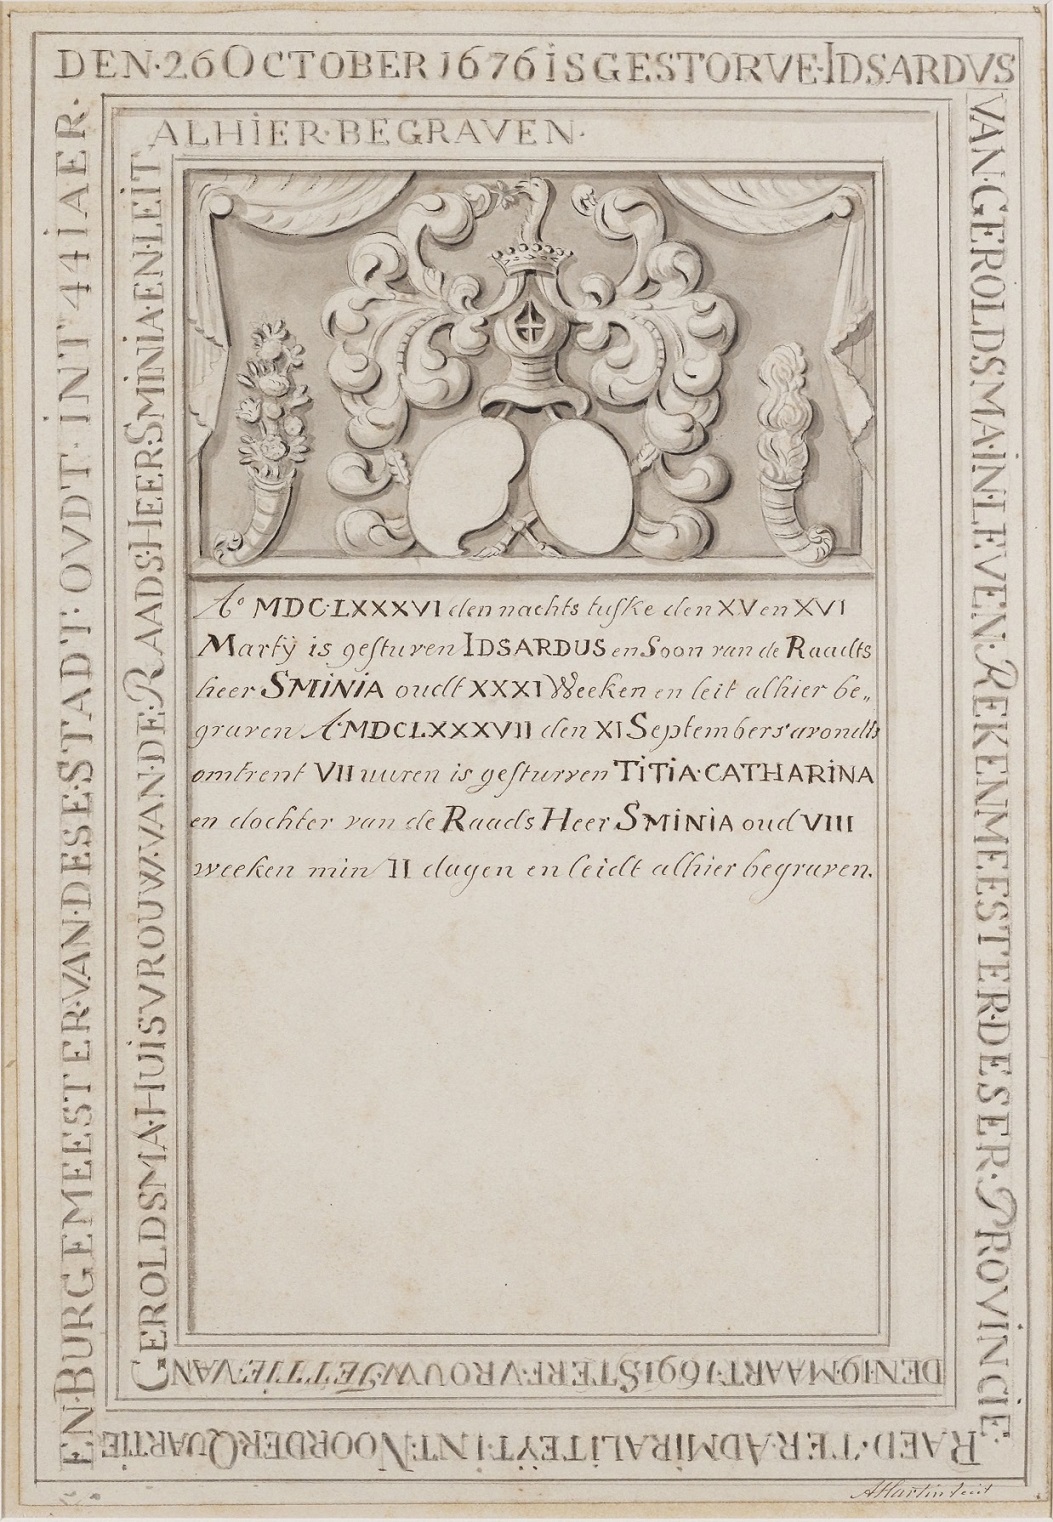 DEN·26 OCTOBER 1676 iS GESTORVE·IDSARDVS
VAN·GEROLDSMA·iN·LEVEN·REKENMEESTER·DESER·PROViNCiE·
RAED·TER·ADMiRALiTEŸT·iNT·NOORDER·QUARTiE
EN·BURGEMEESTER·VAN·DESE·STADT·OVDT·iNT 44 iAER·
DEN·19·MAART·1691·STERF·VROUW·JETTIE·VAN
GEROLDSMA·HUiSVROUW·VAN·DE·RAADS·HEER·SMiNiA·EN·LEiT
ALHiER·BEGRAVEN·
Aº MDC·LXXXVI den nachts tuske den XV en XVI
Martÿ is gesturven IDSARDUS en Soon van de Raadts
heer SMiNiA oudt XXXI Weeken en leit alhier be„
graven Aº MDCLXXXVII den XI September s'avondts
omtrent VII uuren is gesturven TiTiA·CATHARiNA
en dochter van de Raads Heer SMiNiA oud VIII
weeken min II dagen en leidt alhier begraven.
A Martin fecit